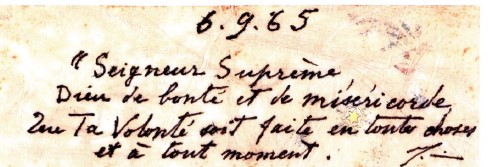 6.9.65
" Seigneur Suprème
Dieu de bonté et de miséricorde,
Que Ta Volonté soit faite en toutes choses
et à tout moment.